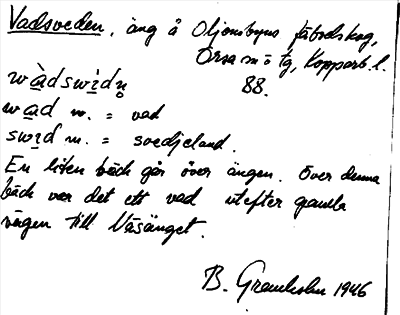 Vadsveden, äng å Oljonsbyns fäbodskog,
Orsa sn o tg, Kopparb. l.
wàdswìdn̥ 88.
wad n. = vad
swid n. = svedjeland.
En liten bäck går över ängen. Över denna
bäck var det ett vad utefter gamla
vägen till Näsänget.
B. 1946